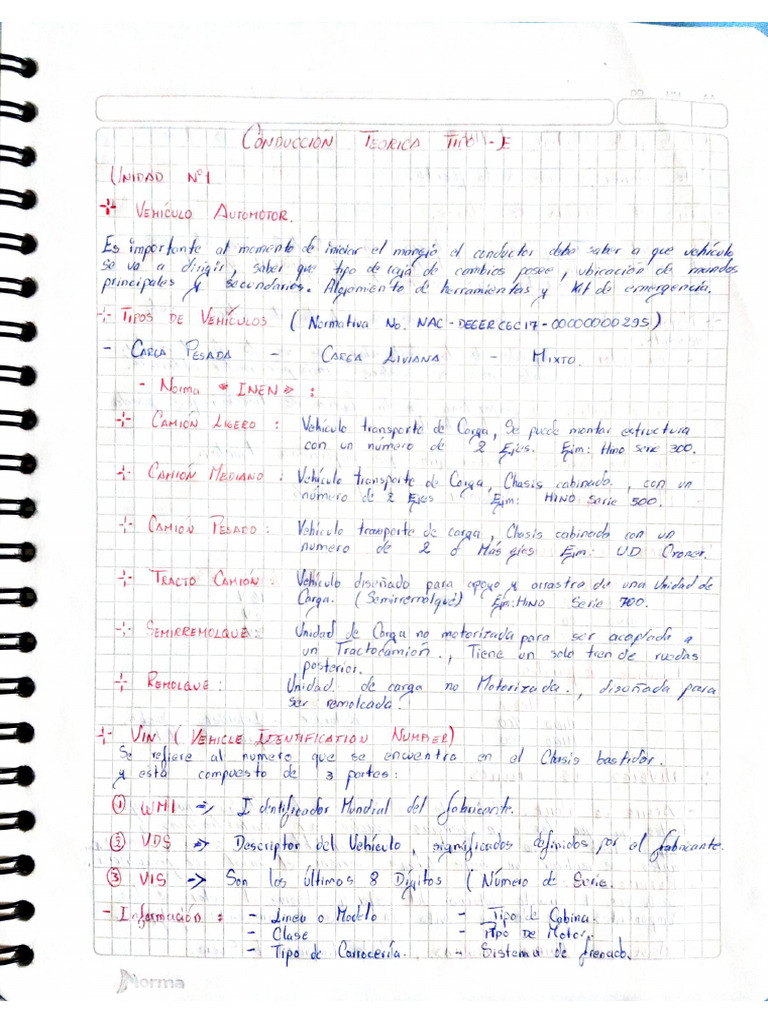 CONDUCCIÓN TEORICA TIPO - E
UNIDAD Nº1
VEHÍCULO AUTOMOTOR.
Es importante al momento de iniciar el manejo el conductor debe saber a que vehículo
se va a dirigir, saber que tipo de caja de cambios posee, ubicación de mandos
principales y secundarios. Alojamiento de herramientas y Kit de emergencia.
TIPOS DE VEHÍCULOS ( Normativa No. NAC - DEGERCGC17 - 00000000295)
- CARGA PESADA - CARGA LIVIANA - MIXTO.
- Norma « INEN » :
CAMIÓN LIGERO : Vehículo transporte de Carga, Se puede montar estructura
con un número de 2 Ejes. Ejm: Hino serie 300.
CAMIÓN MEDIANO : Vehículo transporte de Carga, Chasis cabinado., con un
número de 2 Ejes Ejm: HINO Serie 500.
CAMIÓN PESADO : Vehículo transporte de carga, Chasis cabinado con un
numero de 2 ó Más ejes Ejm: UD Croner.
TRACTO CAMIÓN : Vehículo diseñado para apoyo y arrastre de una Unidad de
Carga. (Semirremolque) Ejm: HINO Serie 700.
SEMIRREMOLQUE : Unidad de Carga no motorizada para ser acoplada a
un Tractocamión., Tiene un solo tren de ruedas
posterior.
REMOLQUE : Unidad de carga no Motorizada., diseñada para
ser remolcada.
VIN ( VEHICLE IDENTIFICATION NUMBER)
Se refiere al numero que se encuentra en el Chasis bastidor.
y está compuesto de 3 partes:
① WMI => Identificador Mundial del fabricante.
② VDS => Descriptor del Vehículo, significados definidos por el fabricante.
③ VIS -> Son los últimos 8 Dígitos ( Número de Serie.
- Información : - Linea o Modelo - Tipo de Cabina.
- Clase - TIPO DE Motor.
- Tipo de Carrocería. - Sistema de frenado.
Norma